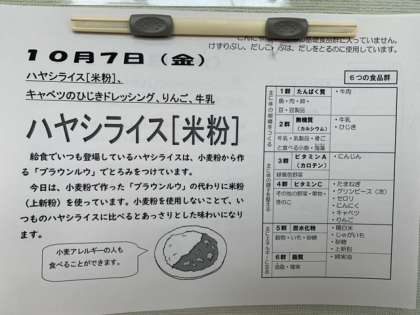 に入っていません。
けずりぶし、だしこんぶは、だしをとるのに使用しています。
１０月７日（金）
ハヤシライス[米粉]、
キャベツのひじきドレッシング、りんご、牛乳
ハヤシライス[米粉]
給食でいつも登場しているハヤシライスは、小麦粉から作
る「ブラウンルウ」でとろみをつけています。
今日は、小麦粉で作った「ブラウンルウ」の代わりに米粉
（上新粉）を使っています。小麦粉を使用しないことで、い
つものハヤシライスに比べるとあっさりとした味わいになり
ます。
小麦アレルギーの人も
食べることができます。
６つの食品群
１群 たんぱく質
魚・肉・卵・
豆・豆製品
・牛肉
２群 無機質
（カルシウム）
牛乳・乳製品・骨ご
と食べる小魚・海藻
・牛乳
・ひじき
３群 ビタミンＡ
（カロテン）
緑黄色野菜
・にんじん
４群 ビタミンＣ
その他の野菜・果物・
きのこ
・たまねぎ
・グリンピース（冷）
・セロリ
・にんにく
・キャベツ
・りんご
５群 炭水化物
穀物・いも・砂糖
・精白米
・じゃがいも
・砂糖
・上新粉
６群 脂質
油脂・種実
・綿実油